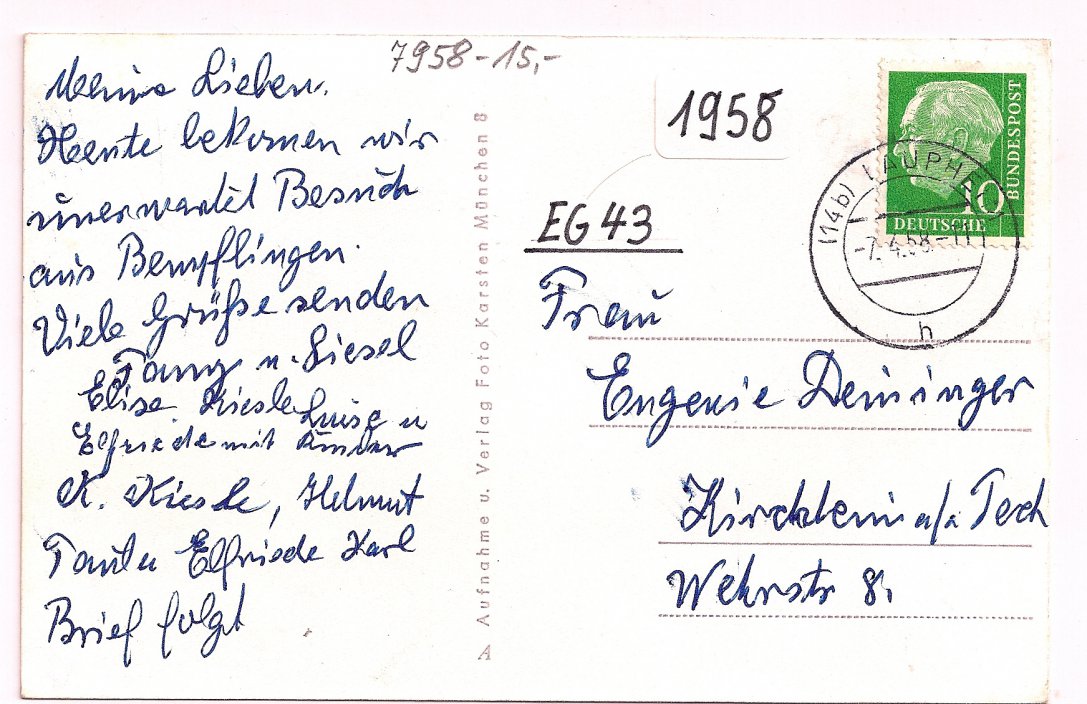 7958-15,-
1958
EG 43
Meine Lieben.
Heute bekomen wir
unerwartet Besuch
aus Bempflingen.
Viele Grüße senden
u. Liesel
Elise Kiesle Luise u
Elfriede mit Kinder
K. Kiesle, Helmut
Elfriede Karl
Brief folgt
A Aufnahme u. Verlag Foto Karsten München 8
BUNDESPOST
10
DEUTSCHE
(14b) LAUPHEI
-7.4.58.-11
b
Frau
Eugenie Deininger
Kirchheim a/a Teck
Wehrstr 8.